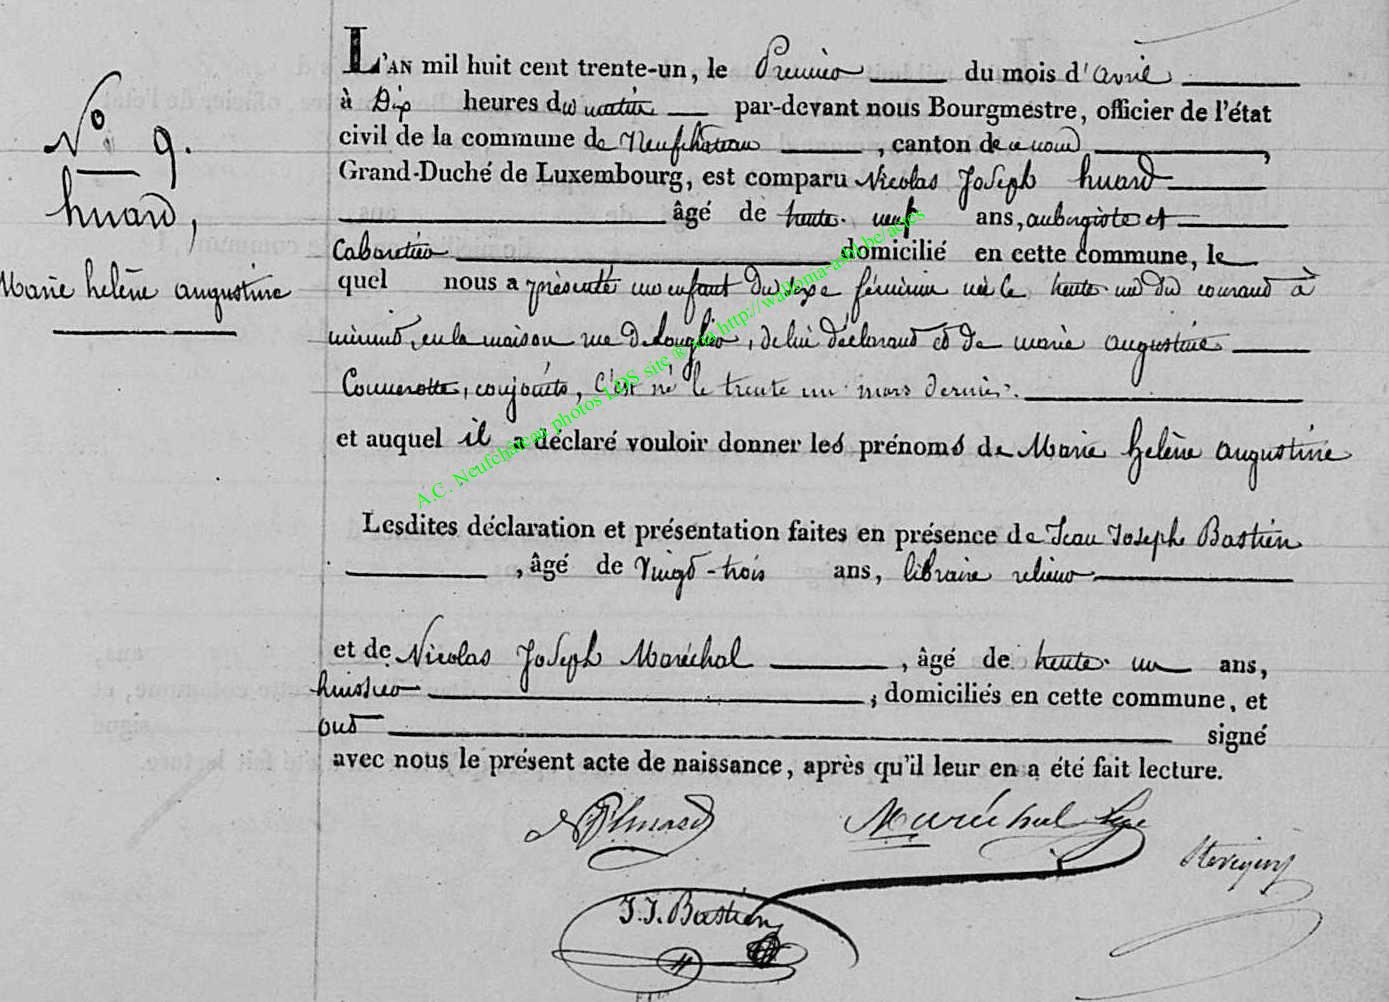 N° 9.
huard,
Marie helène augustine
L'AN mil huit cent trente-un, le Premier du mois d'avril
à Dix heures du matin par-devant nous Bourgmestre, officier de l'état
civil de la commune de Neufchâteau, canton de ce nom,
Grand-Duché de Luxembourg, est comparu Nicolas Joseph huard
âgé de trente neuf ans, aubergiste et
Cabaretier domicilié en cette commune, le
quel nous a présenté un enfant du sexe féminin né le trente un du courant à
minuit, en la maison rue de , de lui déclarant et de marie augustine
Connerotte, conjoints, C'est né le trente un mars dernier.
et auquel il a déclaré vouloir donner les prénoms de Marie helène augustine
A.C. Neufchâteau photos LDS site © sca http://wallonia-asbl.be/actes
Lesdites déclaration et présentation faites en présence de Jean Joseph Bastien
, âgé de vingt-trois ans, libraire relieur
et de Nicolas Joseph Maréchal, âgé de trente un ans,
huissier, domiciliés en cette commune, et
ont signé
avec nous le présent acte de naissance, après qu'il leur en a été fait lecture.
NJhuard Maréchal
J.J. Bastien